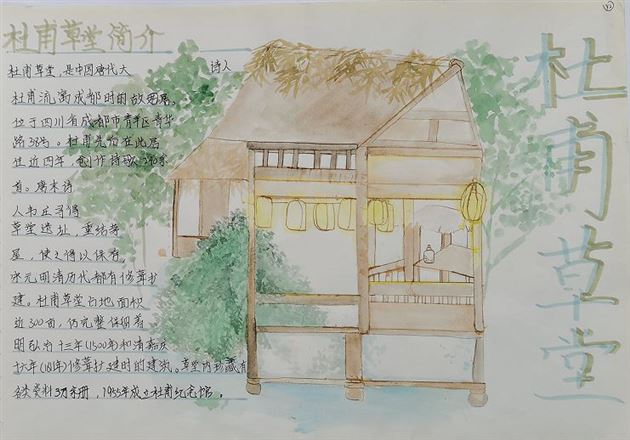 杜甫草堂简介
杜甫草堂，是中国唐代大 诗人
杜甫流寓成都时的故居。
位于四川省成都市青羊区青华
路38号。杜甫先后在此居
住近四年，创作诗歌240余
首。唐末诗
人韦庄寻得
草堂遗址，重结茅
屋，使之得以保存，
宋元明清历代都有修葺扩
建。杜甫草堂占地面积
近300亩，仍完整保留着
明弘治十三年(1500年)和清嘉庆
十六年(1811年)修葺扩建时的建筑。草堂内珍藏有
各类资料3万余册，1955年成立杜甫纪念馆。
杜甫草堂